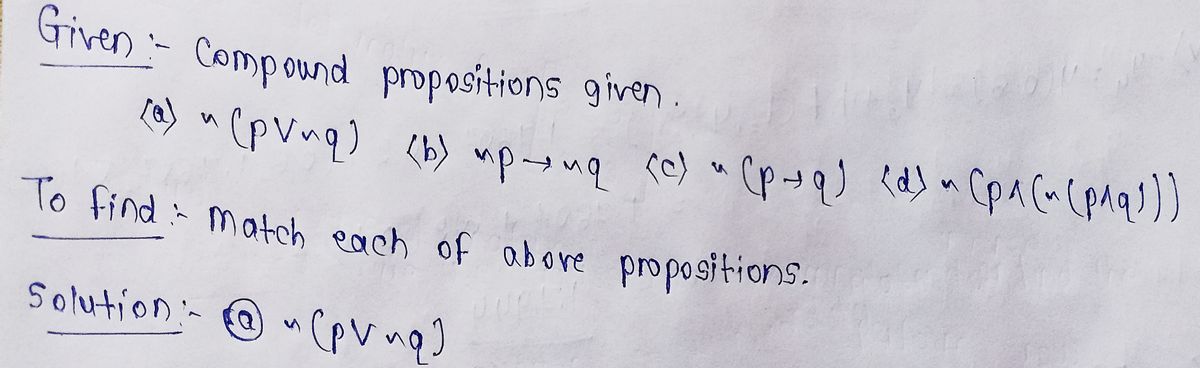 Given :- Compound propositions given.
(a) ~(p∨~q) (b) ~p→~q (c) ~(p→q) (d) ~(p∧(~(p∧q)))
To find :- Match each of above propositions.
Solution :- (a) ~(p∨~q)